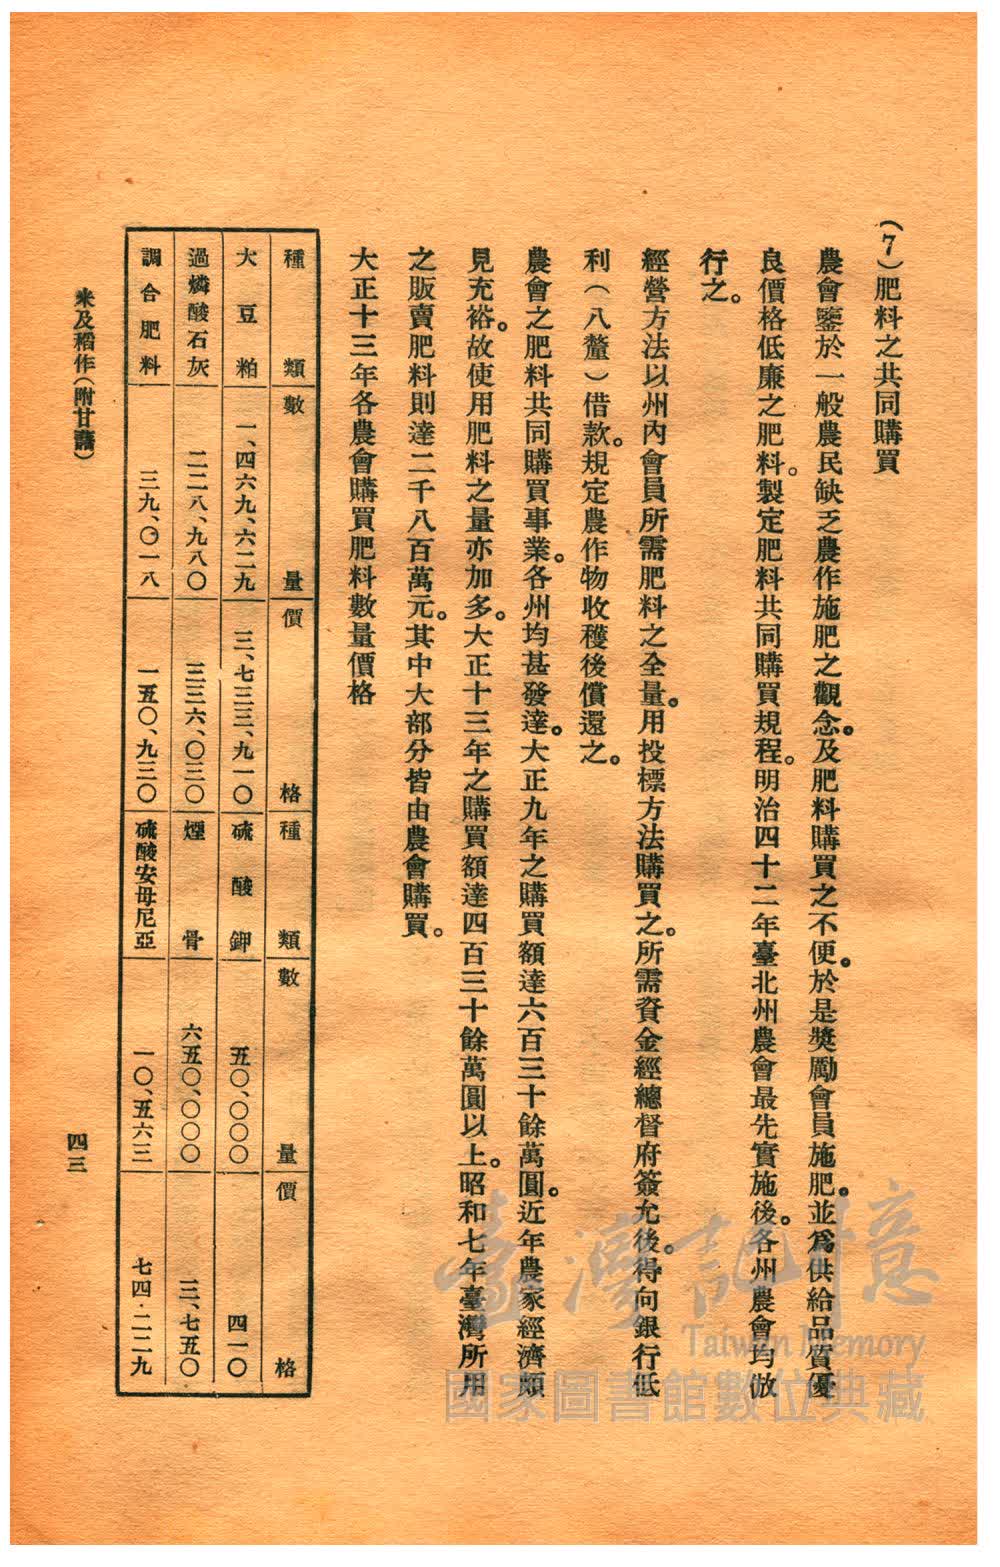 (7)肥料之共同購買
農會鑒於一般農民缺乏農作施肥之觀念。及肥料購買之不便。於是獎勵會員施肥。並爲供給品質優
良價格低廉之肥料。製定肥料共同購買規程。明治四十二年臺北州農會最先實施後。各州農會均倣
行之。
經營方法以州內會員所需肥料之全量。用投標方法購買之。所需資金經總督府簽允後。得向銀行低
利(八釐)借款。規定農作物收穫後償還之。
農會之肥料共同購買事業。各州均甚發達。大正九年之購買額達六百三十餘萬圓。近年農家經濟頗
見充裕。故使用肥料之量亦加多。大正十三年之購買額達四百三十餘萬圓以上。昭和七年臺灣所用
之販賣肥料則達二千八百萬元。其中大部分皆由農會購買。
大正十三年各農會購買肥料數量價格
種類 數量 價格 種類 數量 價格
大豆粕 一、四六九、六二九 三、七三三、九一〇 硫酸鉀 五〇、〇〇〇 四一〇
過燐酸石灰 二二八、九八〇 三三六、〇三〇 煙骨 六五〇、〇〇〇 三、七五〇
調合肥料 三九、〇一八 一五〇、九三〇 硫酸安母尼亞 一〇、五六三 七四·二二九
米及稻作(附甘藷)
四三
臺灣記憶
Taiwan Memory
國家圖書館數位典藏